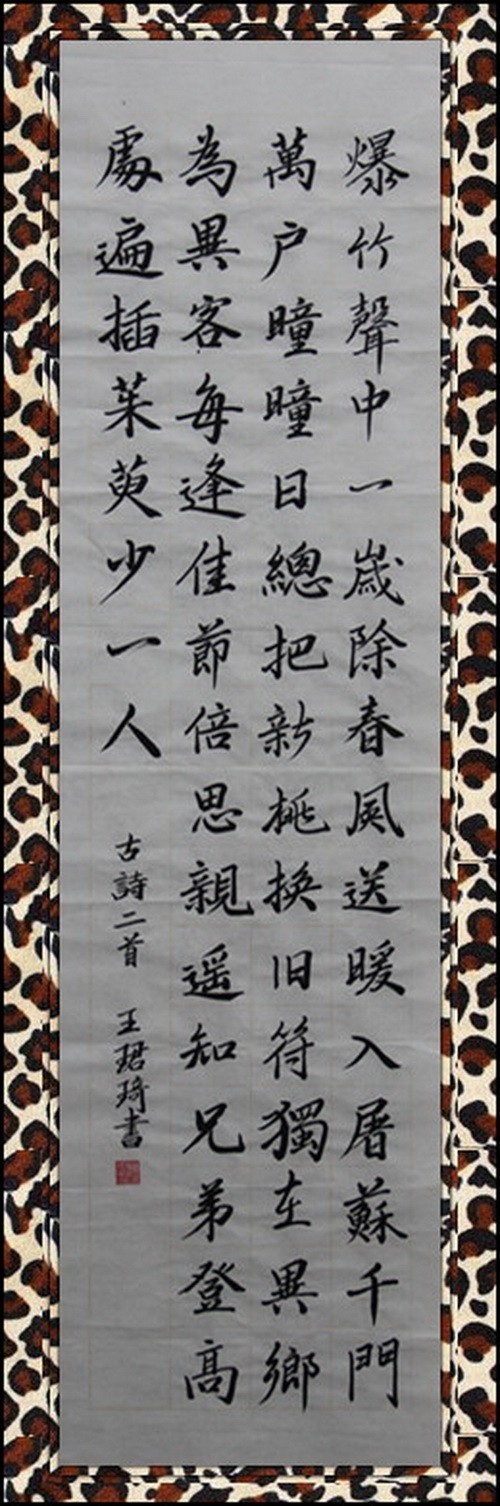 爆竹聲中一歲除春風送暖入屠蘇千門
萬户曈曈日總把新桃換旧符獨在異鄉
為異客每逢佳節倍思親遥知兄弟登高
處遍插茱萸少一人
古詩二首 王珺琦書